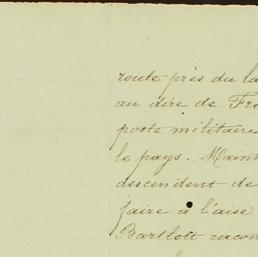 route près du la
au dire de Fr
poste militaire
le pays. Maint
descendent de
faire à l'aise
Bartlett racon